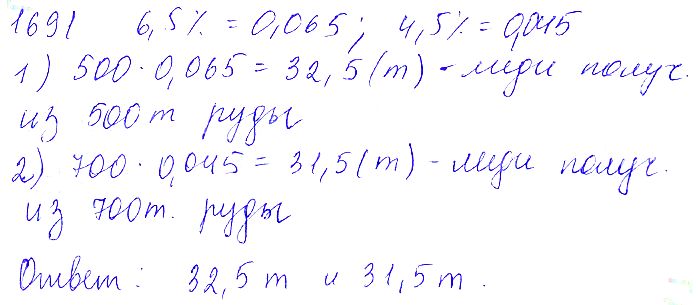 1691 6,5% = 0,065; 4,5% = 0,045
1) 500 · 0,065 = 32,5 (т) - меди получ.
из 500т руды
2) 700 · 0,045 = 31,5 (т) - меди получ.
из 700т. руды
Ответ: 32,5 т и 31,5 т.